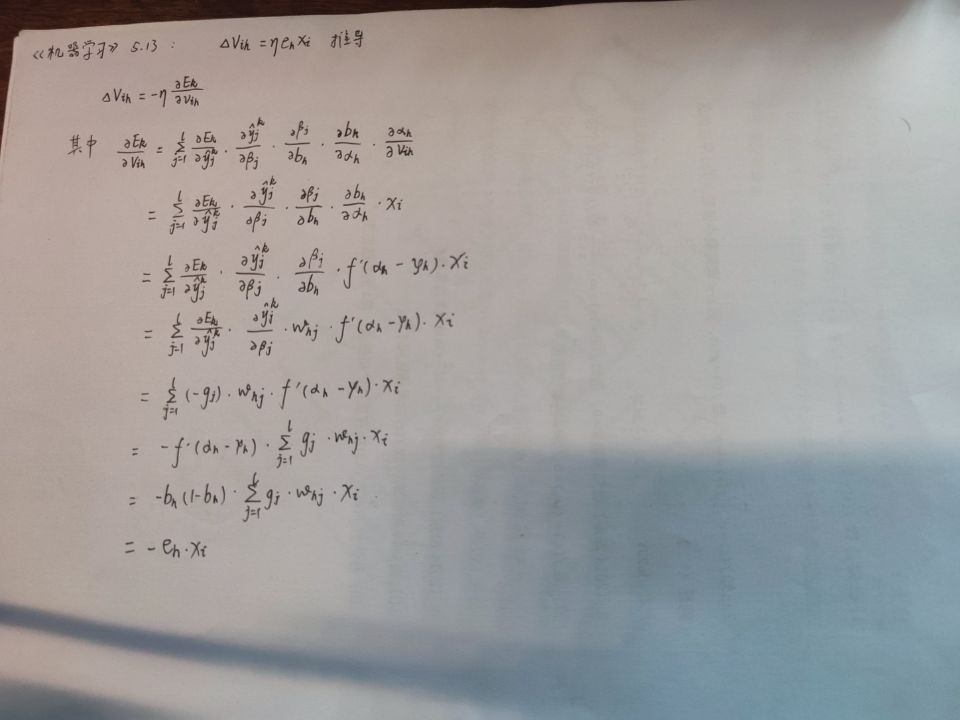 《机器学习》 5.13 : ΔVih = ηehxi 推导
ΔVih = -η ∂Ek/∂Vih
其中 ∂Ek/∂Vih = Σ_{j=1}^{l} ∂Ek/∂ŷj^k · ∂ŷj^k/∂βj · ∂βj/∂bh · ∂bh/∂αh · ∂αh/∂Vih
= Σ_{j=1}^{l} ∂Ek/∂ŷj^k · ∂ŷj^k/∂βj · ∂βj/∂bh · ∂bh/∂αh · xi
= Σ_{j=1}^{l} ∂Ek/∂ŷj^k · ∂ŷj^k/∂βj · ∂βj/∂bh · f'(αh - γh) · xi
= Σ_{j=1}^{l} ∂Ek/∂ŷj^k · ∂ŷj^k/∂βj · whj · f'(αh - γh) · xi
= Σ_{j=1}^{l} (-gj) · whj · f'(αh - γh) · xi
= -f'(αh - γh) · Σ_{j=1}^{l} gj · whj · xi
= -bh(1-bh) · Σ_{j=1}^{l} gj · whj · xi
= -eh · xi